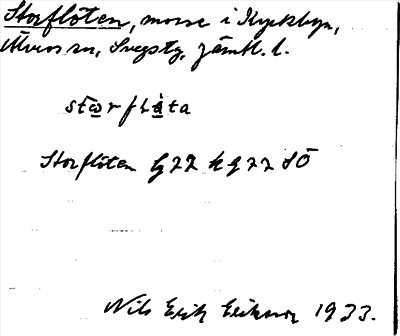 Storflöten, mosse i Kyrkbyn,
Älvros sn, Svegs tg, Jämtl. l.
stωrfLàta
Storflöten G22 kg 22 SÖ
Nils Erik Eriksson 1933.